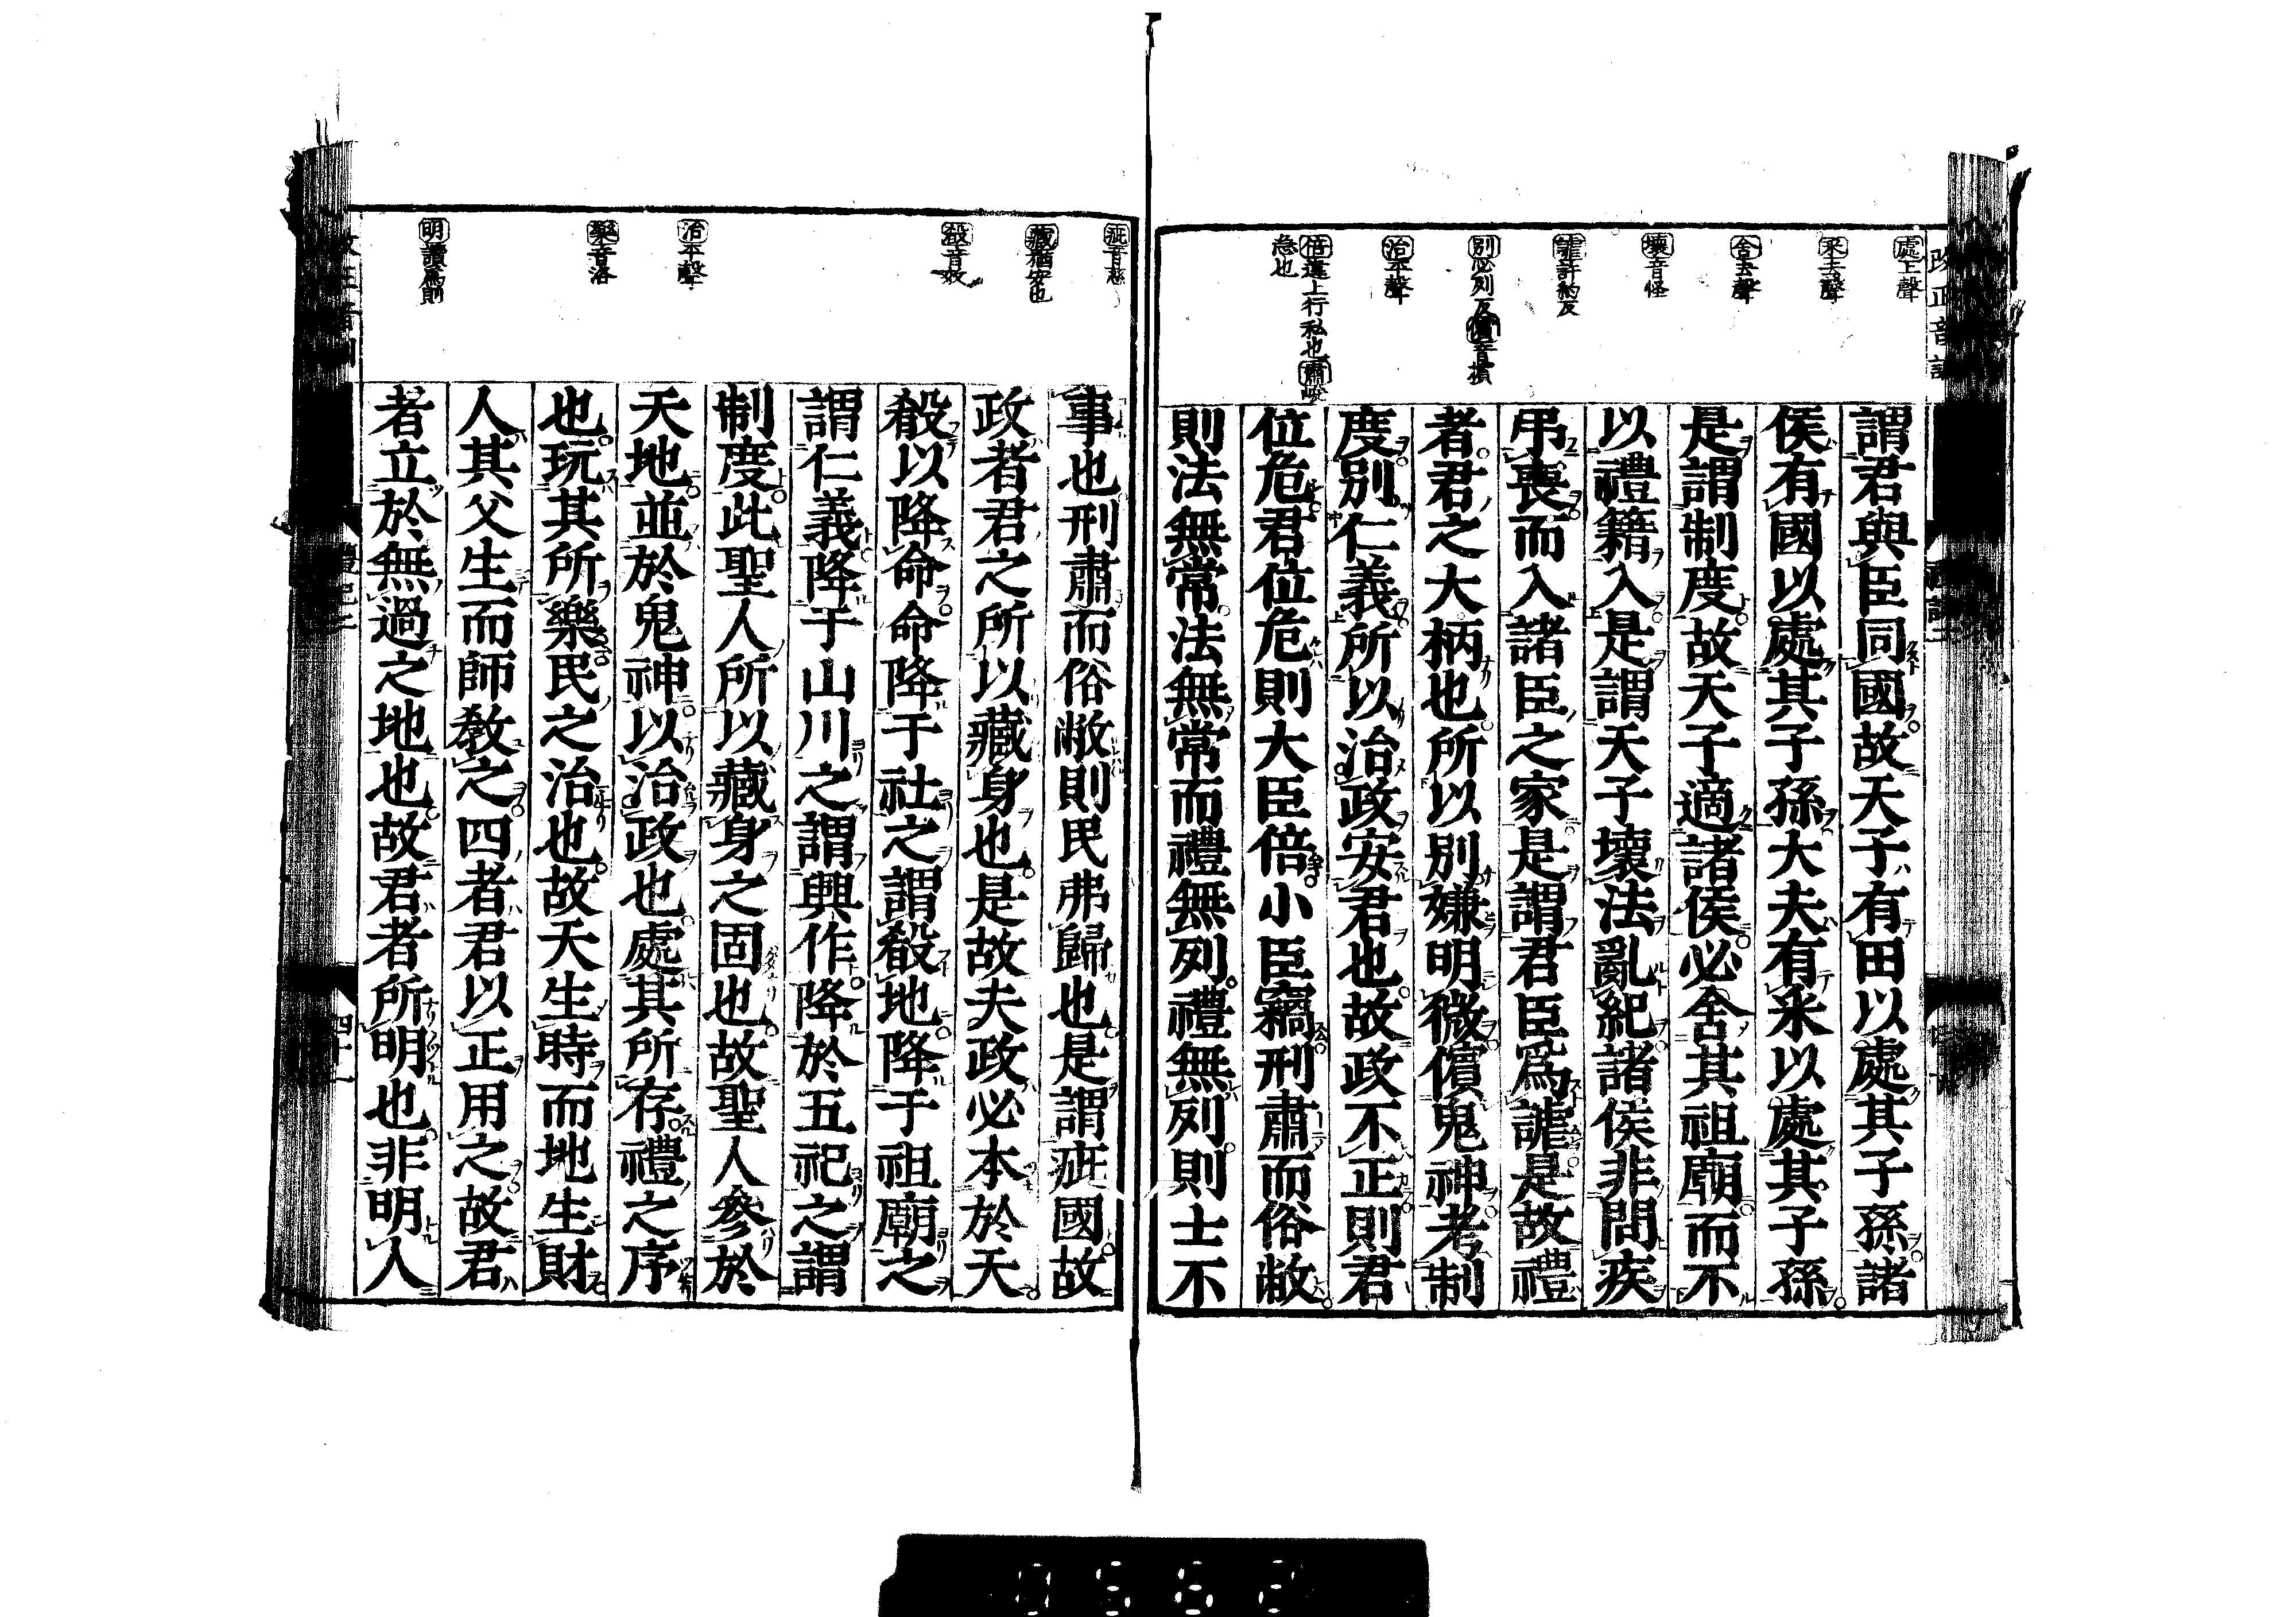 處上聲
采去聲
舍去聲
壞音怪
謔許約反
別必列反儐音擯
治平聲
倍違上行私也肅峻
急也
謂君與臣同國故天子有田以處其子孫諸
侯有國以處其子孫大夫有采以處其子孫
是謂制度故天子適諸侯必舍其祖廟而不
以禮籍入是謂天子壞法亂紀諸侯非問疾
弔喪而入諸臣之家是謂君臣爲謔是故禮
者君之大柄也所以別嫌明微儐鬼神考制
度別仁義所以治政安君也故政不正則君
位危君位危則大臣倍小臣竊刑肅而俗敝
則法無常法無常而禮無列禮無列則士不
疵音慈
藏猶安也
殽音效
治平聲
樂音洛
明讀爲則
事也刑肅而俗敝則民弗歸也是謂疵國故
政者君之所以藏身也是故夫政必本於天
殽以降命命降于社之謂殽地降于祖廟之
謂仁義降于山川之謂興作降於五祀之謂
制度此聖人所以藏身之固也故聖人參於
天地並於鬼神以治政也處其所存禮之序
也玩其所樂民之治也故天生時而地生財
人其父生而師教之四者君以正用之故君
者立於無過之地也故君者所明也非明人
四十一